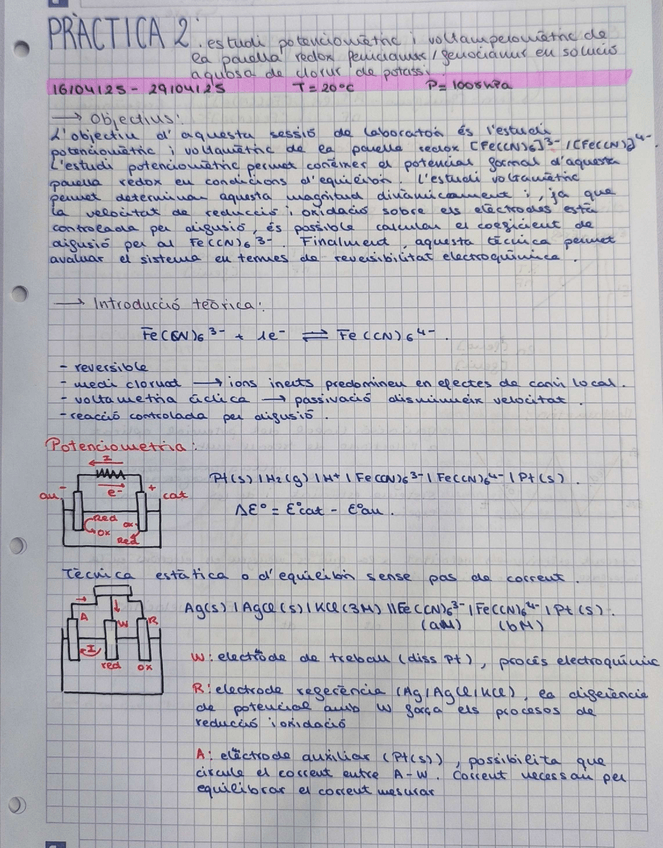 PRÀCTICA 2: estudi potenciomètric i voltamperomètric de
la parella redox ferricianur/ferrocianur en solució
aquosa de clorur de potassi
16/04/25 - 29/04/25 T = 20ºC P = 1005hPa
→ Objectius:
L'objectiu d'aquesta sessió de laboratori és l'estudi
potenciomètric i voltamètric de la parella redox [Fe(CN)6]3- /[Fe(CN)6]4-.
L'estudi potenciomètric permet conèixer el potencial formal d'aquesta
parella redox en condicions d'equilibri. L'estudi voltamètric
permet determinar aquesta magnitud dinàmicament i, ja que
la velocitat de reducció i oxidació sobre els elèctrodes està
controlada per difusió, és possible calcular el coeficient de
difusió per al Fe(CN)6 3-. Finalment, aquesta tècnica permet
avaluar el sistema en termes de reversibilitat electroquímica.
→ Introducció teòrica:
Fe(CN)6 3- + 1e- ⇌ Fe(CN)6 4-.
- reversible
- medi clorurat → ions inerts predominen en efectes de canvi local.
- voltametria cíclica → passivació disminueix velocitat.
- reacció controlada per difusió.
Potenciometria:
I
e-
- +
an cat
Red ox
ox Red
Pt(s) | H2(g) | H+ | Fe(CN)6 3- | Fe(CN)6 4- | Pt(s).
ΔEº = Eºcat - Eºan.
Tècnica estàtica o d'equilibri sense pas de corrent.
A W R
I
red ox
Ag(s) | AgCl(s) | KCl(3M) || Fe(CN)6 3- | Fe(CN)6 4- | Pt(s).
(aM) (bM)
W: elèctrode de treball (diss Pt), procés electroquímic
R: elèctrode referència (Ag/AgCl/KCl), la diferència
de potencial amb W força els procesos de
reducció i oxidació
A: elèctrode auxiliar (Pt(s)), possibilita que
circule el corrent entre A-W. Corrent necessari per
equilibrar el corrent mesurar